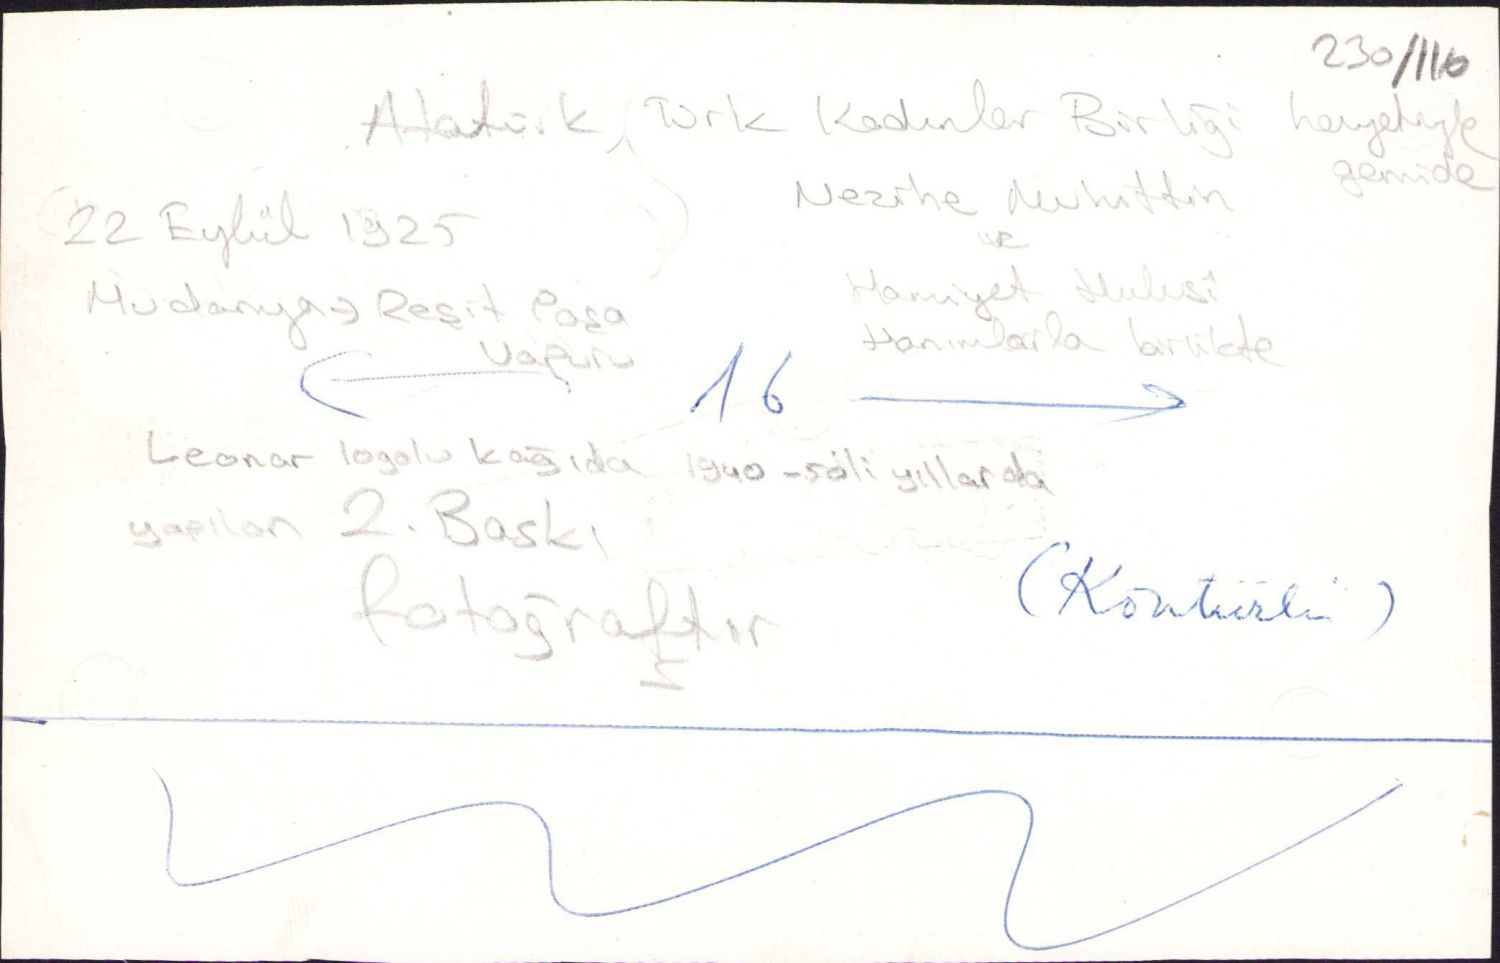 230/116
Atatürk, Türk Kadınlar Birliği heyetiyle
gemide
Nezihe Muhittin
ve
Hamiyet Hulusi
Hanımlarla birlikte
22 Eylül 1925
Mudanya → Reşit Paşa
Vapuru
16
Leonar logolu kağıda 1940-50li yıllarda
yapılan 2. Baskı
fotoğraftır
(Kontürlü)